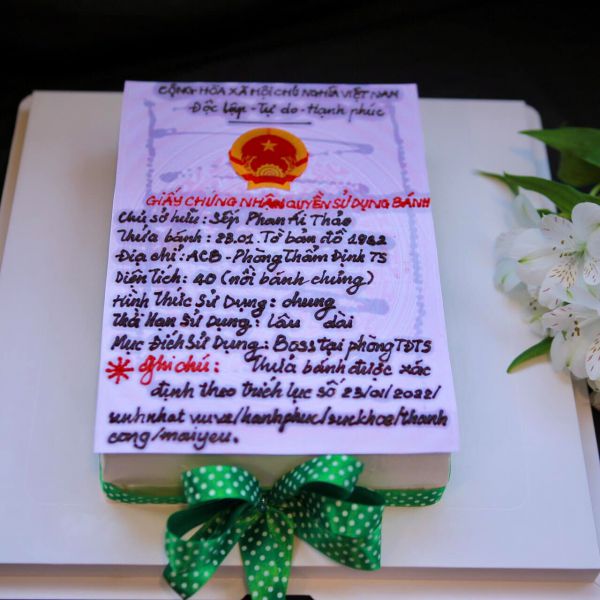 CỘNG HÒA XÃ HỘI CHỦ NGHĨA VIỆT NAM
Độc lập - Tự do - Hạnh phúc
GIẤY CHỨNG NHẬN QUYỀN SỬ DỤNG BÁNH
Chủ sở hữu : Sếp Phan Ái Thảo
Thửa bánh : 23.01. Tờ bản đồ 1982
Địa chỉ : ACB - Phòng Thẩm Định TS
Diện Tích : 40 (nồi bánh chưng)
Hình Thức Sử Dụng : chung
Thời Hạn Sử Dụng : lâu dài
Mục Đích Sử Dụng : Boss tại phòng TĐTS
* Ghi chú : Thửa bánh được xác
định theo trích lục số 23/01/2022/
sinhnhat vuive/hanhphuc/suckhoe/thanh
cong/maiyeu.